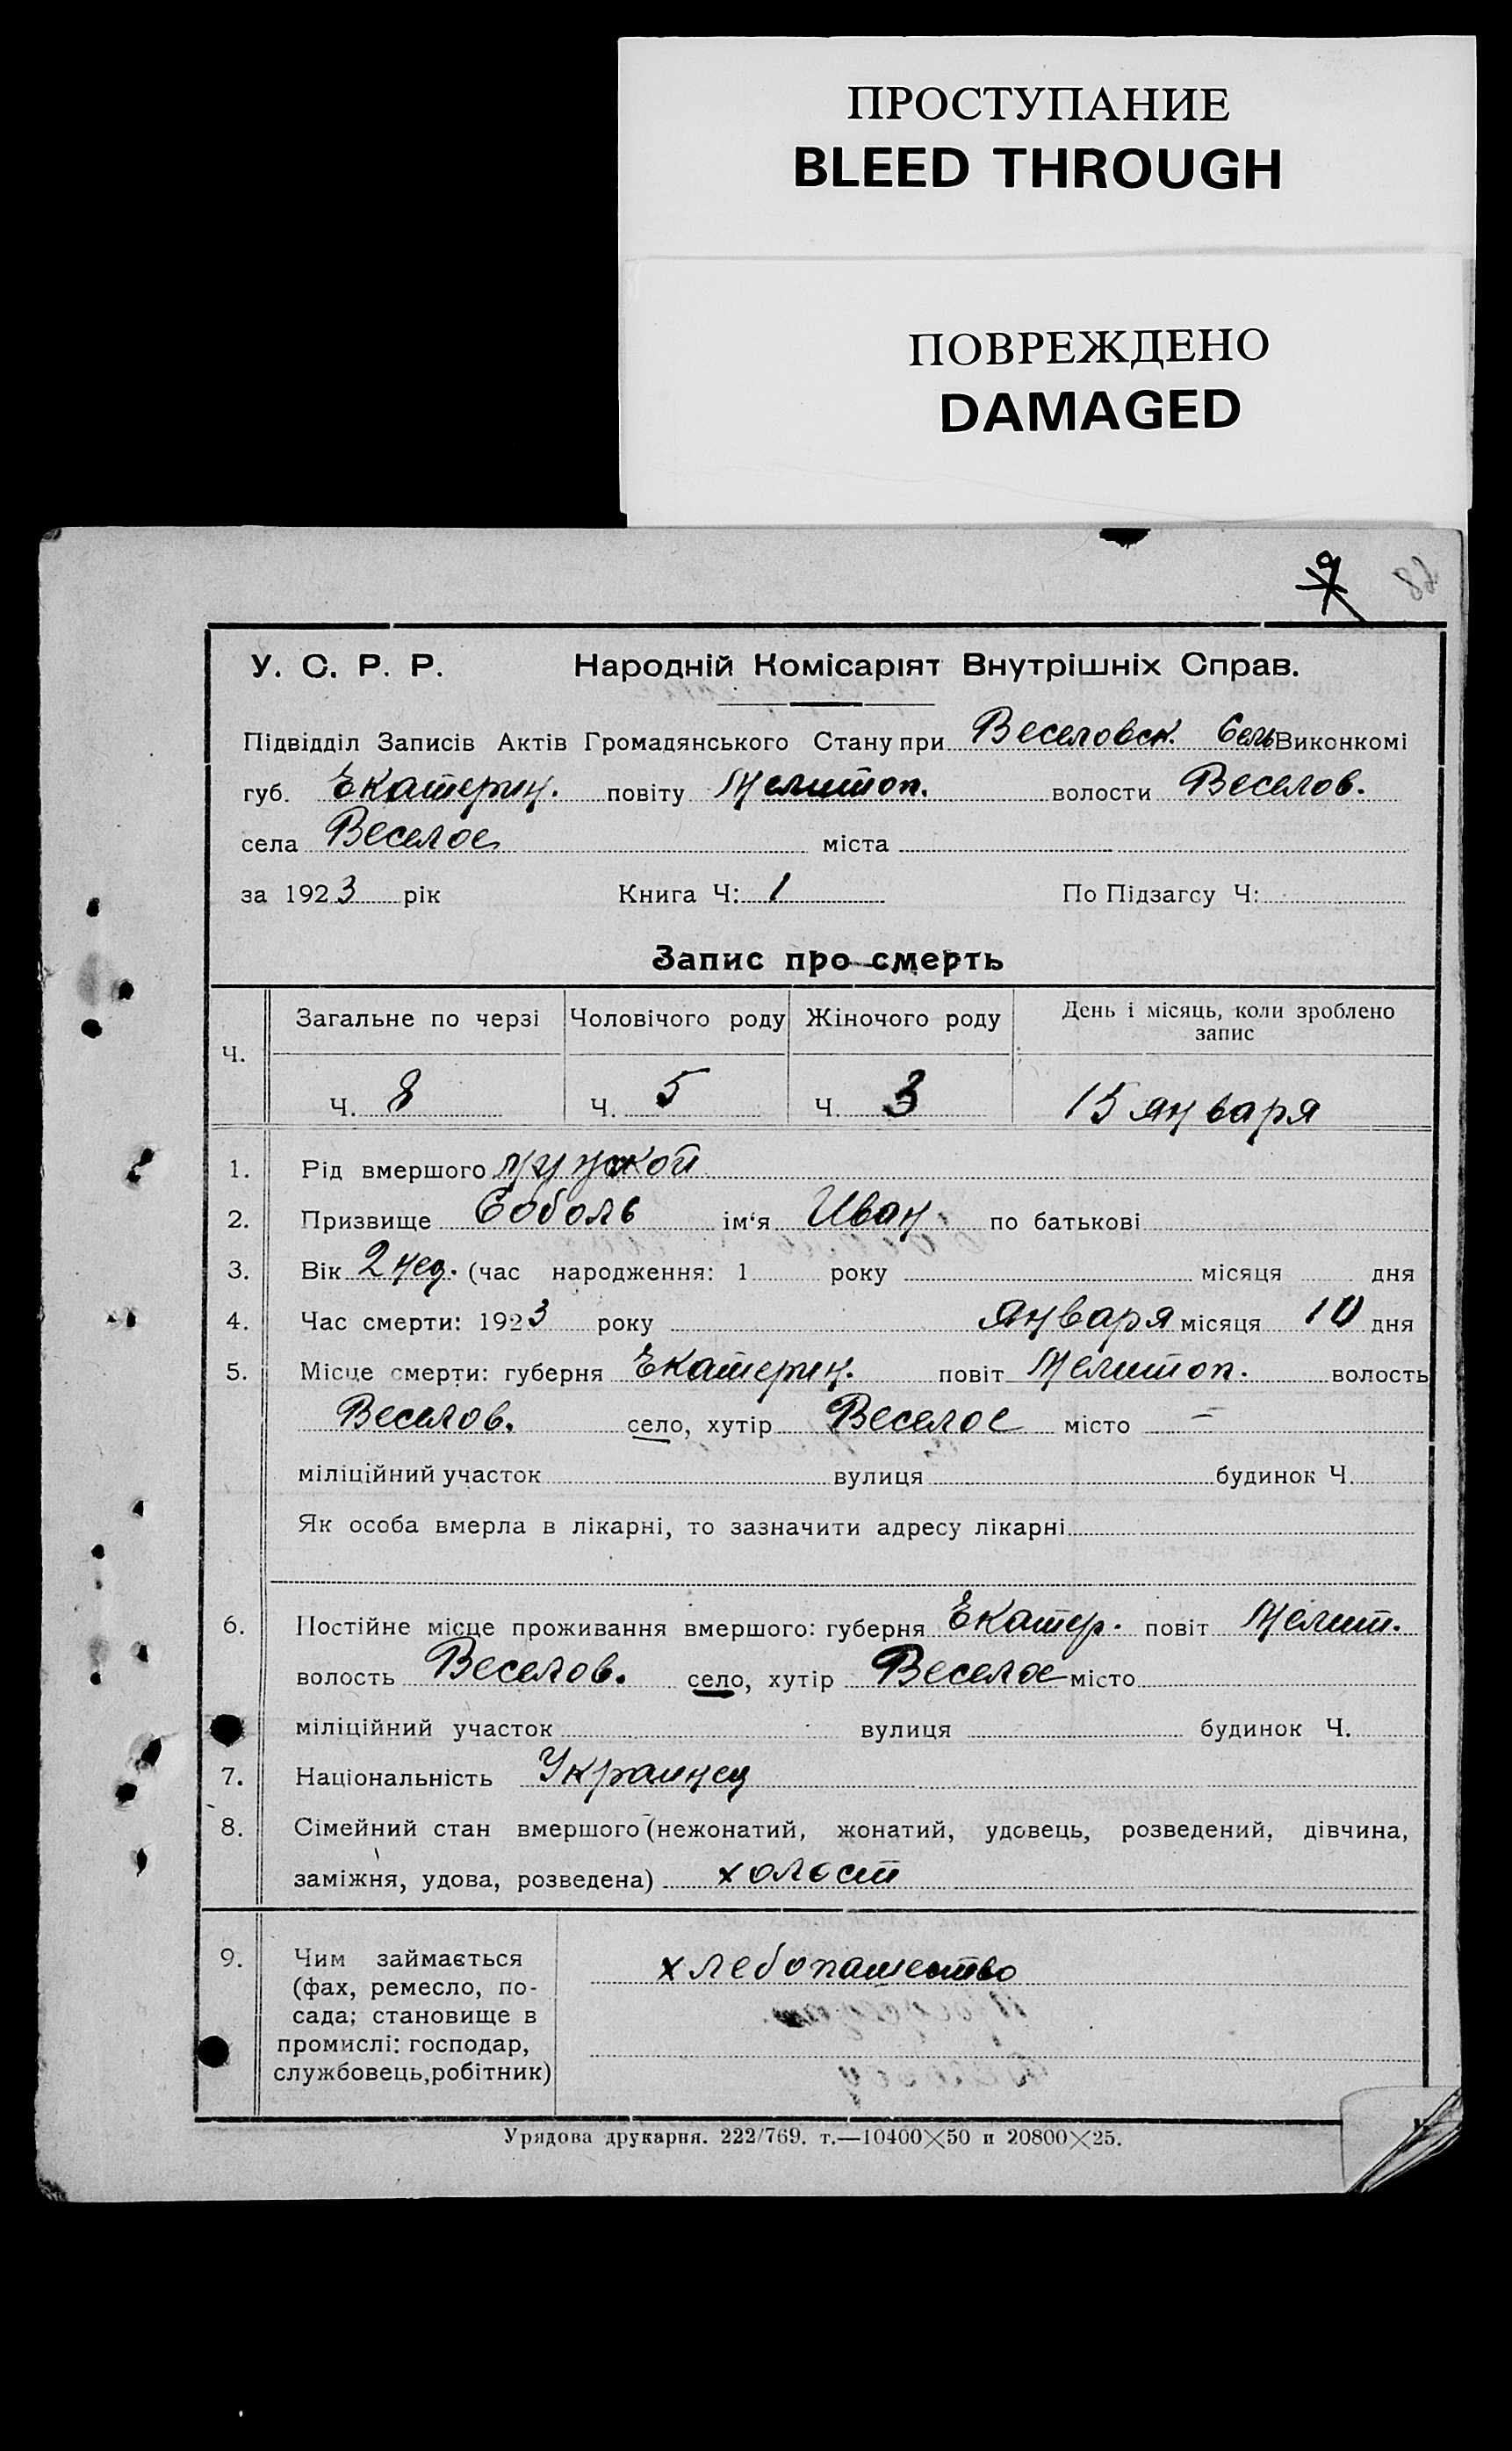 ПРОСТУПАНИЕ
BLEED THROUGH
ПОВРЕЖДЕНО
DAMAGED
9 68
У. С. Р. Р. Народній Комісаріят Внутрішніх Справ.
Підвідділ Записів Актів Громадянського Стану при Веселовск. Сель Виконкомі
губ. Екатерин. повіту Мелитоп. волости Веселов.
села Веселое міста
за 1923 рік Книга Ч: 1 По Підзагсу Ч:
Запис про смерть
Ч. Загальне по черзі Чоловічого роду Жіночого роду День і місяць, коли зроблено
запис
Ч. 8 Ч. 5 Ч. 3 15 января
1. Рід вмершого мужской
2. Призвище Соболь ім'я Иван по батькові
3. Вік 2 нед. (час народження: 1 року місяця дня
4. Час смерти: 1923 року января місяця 10 дня
5. Місце смерти: губерня Екатерин. повіт Мелитоп. волость
Веселов. село, хутір Веселое місто —
міліційний участок вулиця будинок Ч.
Як особа вмерла в лікарні, то зазначити адресу лікарні
6. Постійне місце проживання вмершого: губерня Екатер. повіт Мелит.
волость Веселов. село, хутір Веселое місто
міліційний участок вулиця будинок Ч.
7. Національність Украинец
8. Сімейний стан вмершого (нежонатий, жонатий, удовець, розведений, дівчина,
заміжня, удова, розведена) холост
9. Чим займається хлебопашество
(фах, ремесло, по-
сада; становище в
промислі: господар,
службовець, робітник)
Урядова друкарня. 222/769. т.—10400×50 и 20800×25.